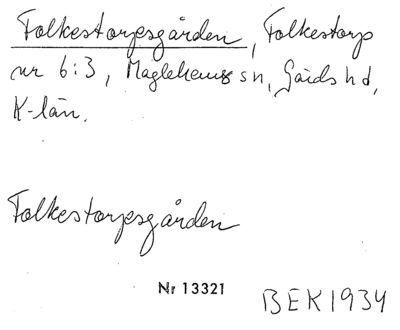 Folkestorpsgården, Folkestorp
nr 6:3, Maglehems sn, Gärds hd,
K-län.
Folkestorpsgården
Nr 13321
BEK 1934